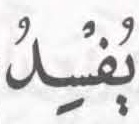 يُفْسِدُ